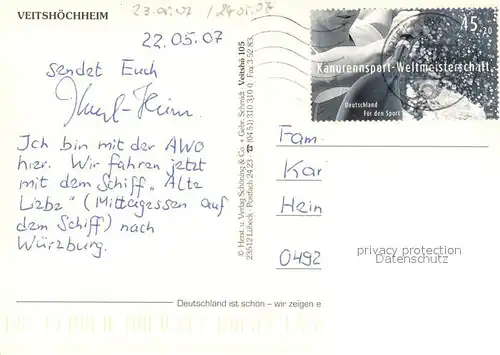 VEITSHÖCHHEIM
23.05.07 / 24.05.07
22.05.07
sendet Euch
Karl-Heinz
Ich bin mit der AWO
hier. Wir fahren jetzt
mit dem Schiff „Alte
Liebe" (Mittagessen auf
dem Schiff) nach
Würzburg.
© Herst. u. Verlag Schöning & Co. + Gebr. Schmidt · Veitshö 105
23512 Lübeck · Postfach 24 23 · ☎ (04 51) 310 310 0 · Fax 3 52 83
45+20
Kanurennsport-Weltmeisterschaft
Deutschland
Für den Sport
Fam.
Kar
Hein
0492
privacy protection
Datenschutz
Deutschland ist schön – wir zeigen e